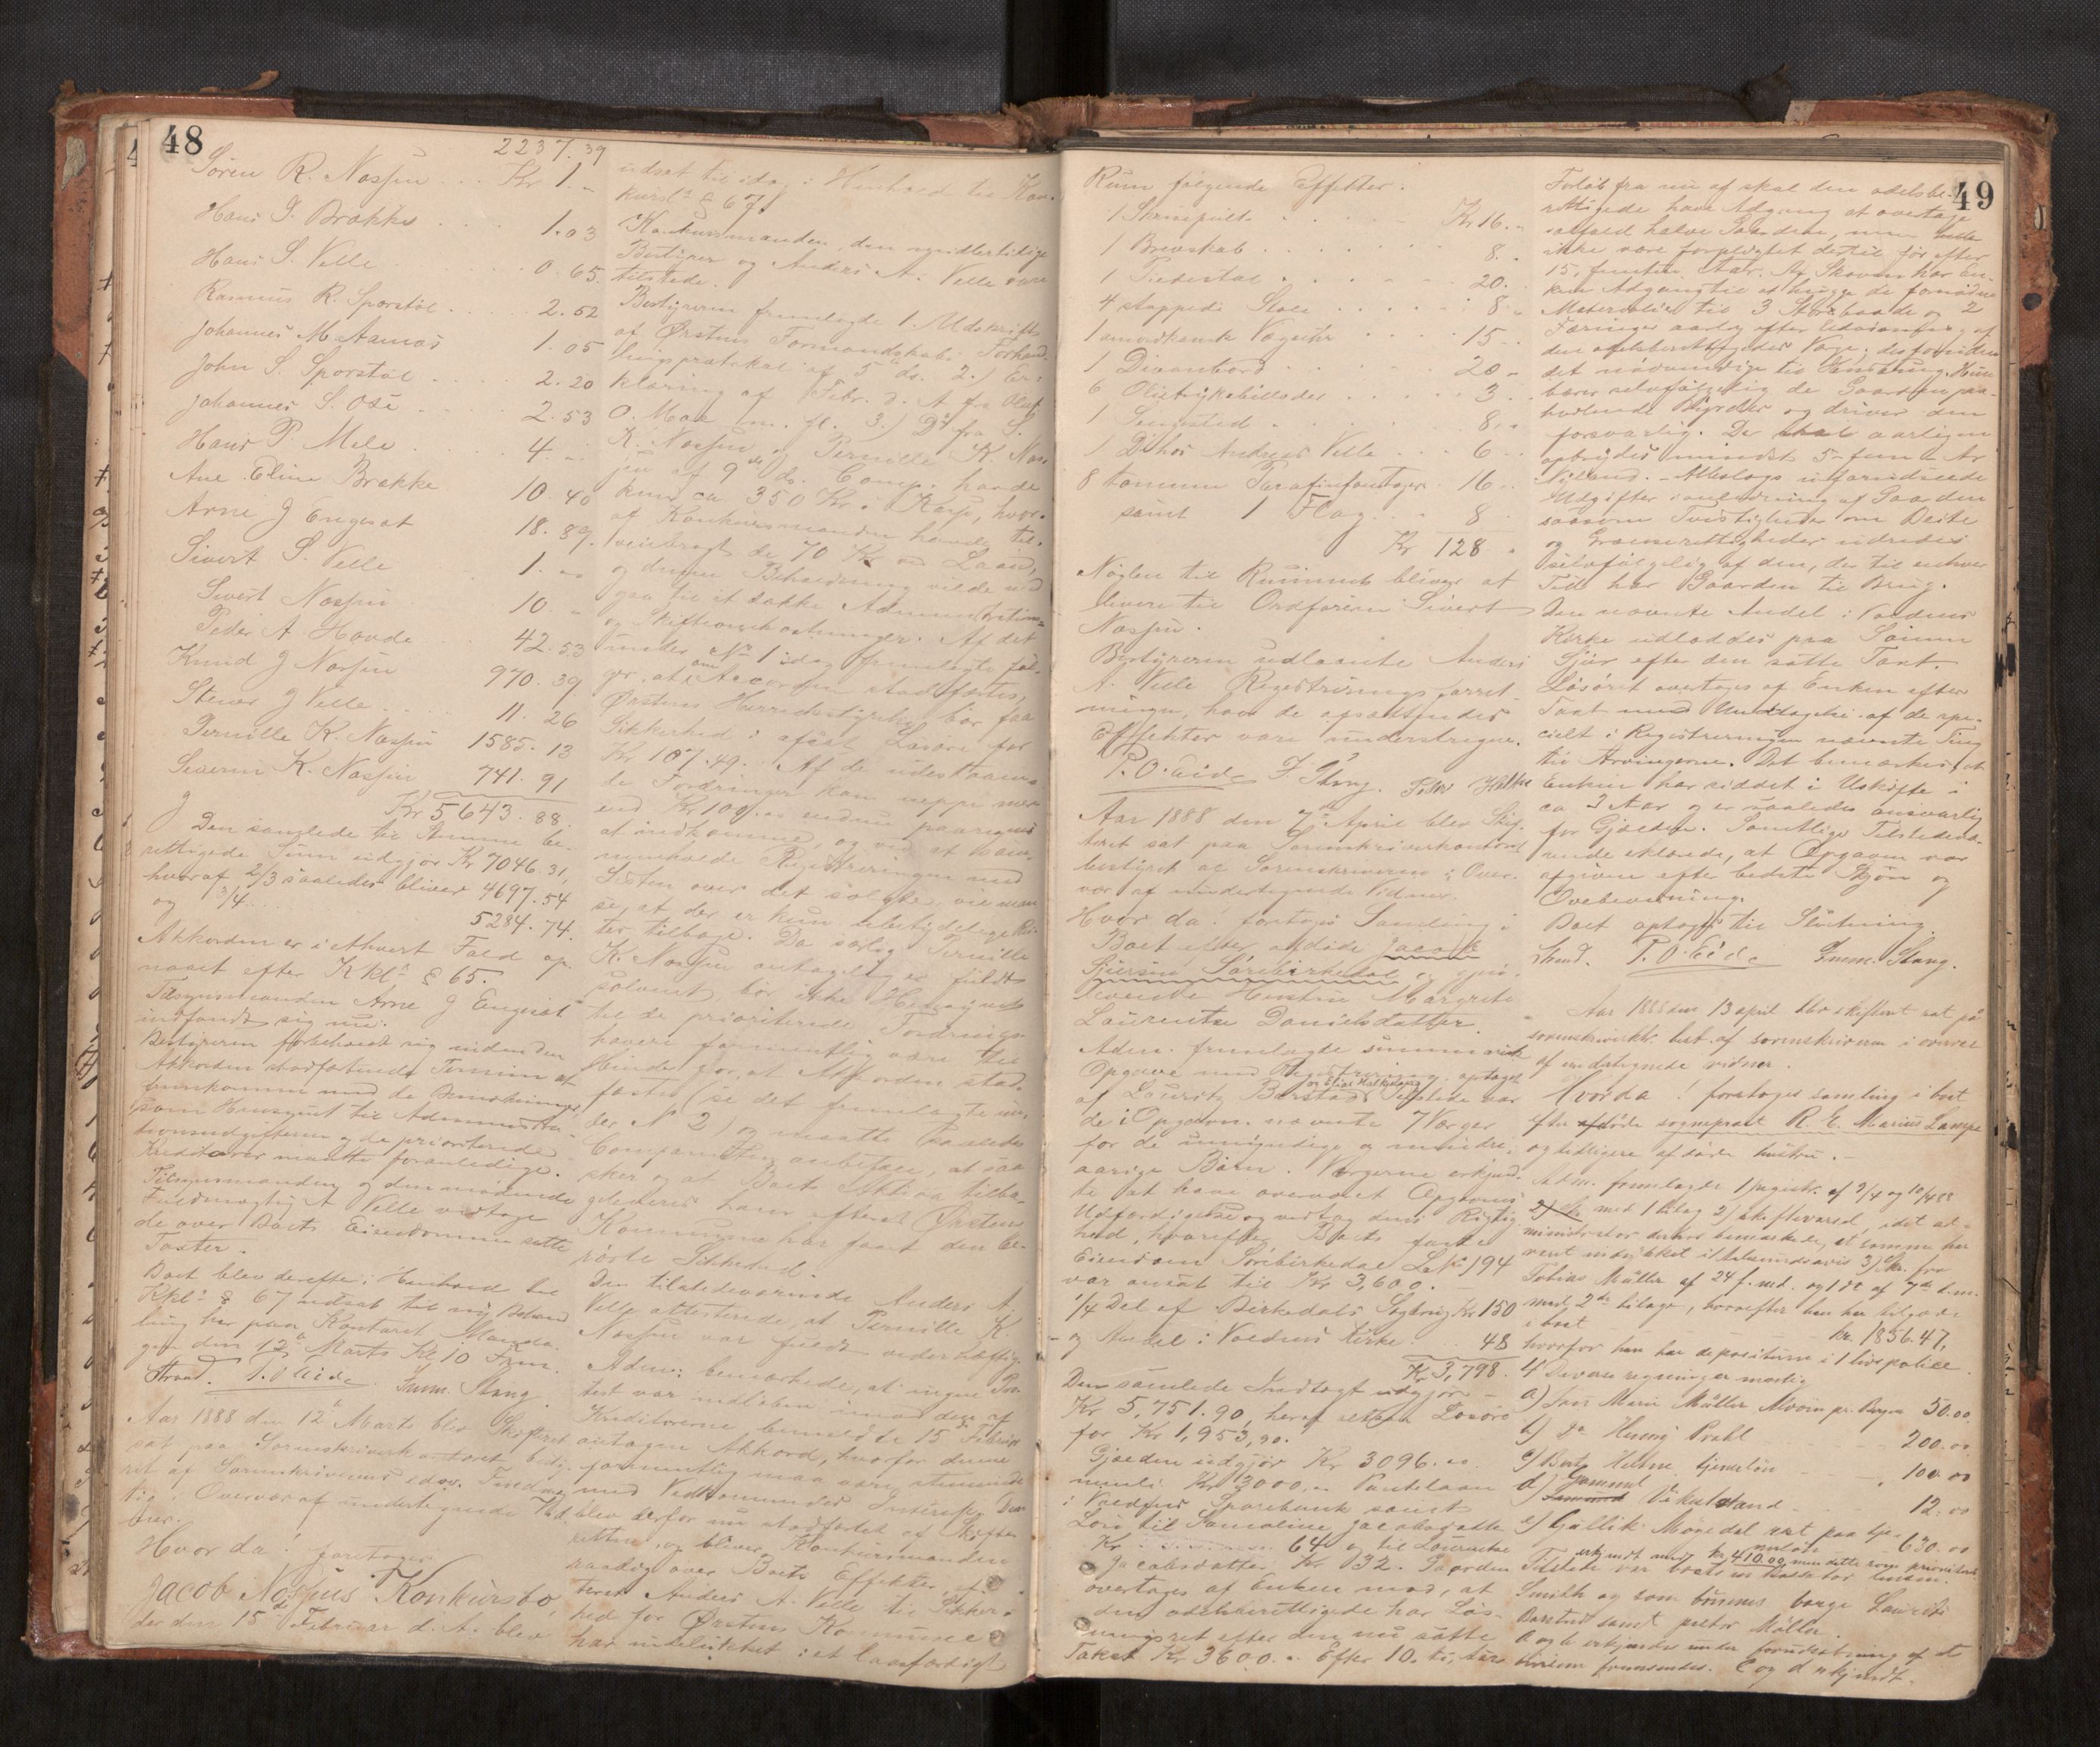 48
2237.39
Søren R. Nassen ... Kr 1.-
Hans P. Brække .... 1.03
Hans S. Velle 0.65
Rasmus R. Sporstøl ..... 2.52
Johannes M. Aamås 1.05
John S. Sporstøl .... 2.20
Johannes S. Ose .... 2.53
Hans P. Mele .... 4.-
Ane Eline Brække 10.40
Arne J Engeset 18.89
Sivert S. Velle 1.-
Sivert Nassen 10.-
Peder A Hovde ... 42.53
Knud J Nassen 970.39
Stener J Velle .... 11.26
Pernille K. Nassen 1585.13
Severin K. Nassen 741.91
Kr 5643.88.
Den samlede til Stemme be-
rettigede Sum udgjør Kr 7046.31,
hvoraf 2/3 saaledes bliver 4697.54
og 3/4 ... 5284.74.
Akkorden er i ethvert Fald op-
naaet efter Kkl § 65.
Tilsynsmanden Arne J Engeset
indfandt sig nu.
Bestyreren forbeholdt sig inden den
Akkorden stadfæstende Termin at
fremkomme med de Bemærkninger,
som Hensynet til Administra-
tionsudgifterne og de prioriterede
Kreditorer maatte foranledige.
Tilsynsmanden og den mødende
Fuldmægtig A Velle vedtoge
de over Boets Eiendomme satte
Taxter.
Boet blev derefter i Henhold til
Kkl § 67 udsat til ny Behand-
ling her paa Kontoret Manda-
gen den 12 Marts Kl 10 Frm.
Strand. P. O Eide. Imm. Stang
Aar 1888 den 12 Marts blev Skifteret
sat paa Sorenskriverkontoret besty-
ret af Sorenskriverens edsv. Fuldmæg-
tig i Overvær af undertegnede Vid-
ner.
Hvor da! foretoges
Jacob Nassens Konkursbo,
der den 15de Februar d. A. blev
udsat til idag i Henhold til Kon-
kursl § 67.
Konkursmanden, den midlertidige
Bestyrer og Anders A. Velle vare
tilstede.
Bestyreren fremlagde 1. Udskrift
af Ørstens Formandskabs Forhand-
lingsprotokol af 5 ds. 2.) Er-
klæring af Febr. d. A fra Oluf
O. Maa m. fl. 3.) Do fra S.
K. Nassen og Pernille K. Nas-
sen af 9de ds. Comp. havde
kun ca. 350 Kr. i Kasse, hvor-
af Konkursmanden havde til-
veiebragt de 70 Kr ved Laan,
og denne Beholdning vilde med-
gaa til at dække Administrations-
og Skifteomkostninger. Af det
under No 1 idag fremlagte føl-
ger, at om Accorden stadfæstes,
Ørstens Herredsstyrelse bør faa
Sikkerhed i afsat Løsøre for
Kr 107.49. Af de udestaaen-
de Fordringer kan neppe mer
end Kr 100.- endnu paaregnes
at indkomme, og ved at sam-
menholde Registreringen med
Listen over det solgte, vil man
se, at der er kun ubetydelige Ru-
ter tilbage. Da særlig Pernille
K. Nassen antagelig er fuldt
solvent, bør ikke Hensynet
til de prioriterede Fordrings-
havere formentlig være til
Hinder for, at Akkorden stad-
fæstes (se det fremlagte un-
der No 2) og maatte saaledes
Comparenten anbefale, at saa
sker og at Boets Aktiva tilba-
geleveres ham efterat Ørstens
Kommune har faaet den be-
rørte Sikkerhed.
Den tilstedeværende Anders A.
Velle attesterede, at Pernille K.
Nassen var fuldt vederhæftig.
Adm. bemærkede, at ingen Pro-
test var indløben imod den af
Kreditorerne bemeldte 15de Februar
antagne Akkord, hvorfor denne
formentlig maa være stemmende
med Vedkommendes Interesse. Den
blev derfor nu stadfæstet af Skifte-
retten, og bliver Konkursmanden
raadig over Boets Effekter, ef-
terat Anders A. Velle til Sikker-
hed for Ørstens Kommune
har indelukket i et laasfærdigt
49
Rum følgende Effekter:
1 Skrivepult ...... Kr 16.-
1 Brevskab ....... 8.-
1 Piedestal ....... 20.-
4 stoppede Stole ...... 8.-
1 amerikansk Vægtuhr .... 15.-
1 Divanbord ...... 20.-
6 Olietryksbilleder ..... 3.-
1 Sengested ..... 8.-
1 Do hos Andreas Velle ... 6.-
8 tomme Parafinfontager . 16.-
samt 1 Flag ... 8
Kr 128.-
Nøglen til Rummet bliver at
levere til Ordføreren Sivert
Nassen.
Bestyreren udlaante Anders
A. Velle Registreringsforret-
ningen, hvor de afsatte
Effekter vare understregne.
P. O. Eide I. Stang. Peder Holthe
Aar 1888 den 7de April blev Skif-
teret sat paa Sorenskriverkontoret
bestyret af Sorenskriveren i Over-
vær af undertegnede Vidner.
Hvor da! foretoges Samling i
Boet efter afdøde Jacob
Sjursen Sørebirkedal og gjen-
levende Hustru Margrete
Laurentse Danielsdatter.
Adm. fremlagde summarisk
Opgave med Registrering optaget
af Lauritz Barstad og Elias Halkjelsvig. Tilstede var
de i Opgaven nævnte 7 Værger
for de umyndige og mindre-
aarige Børn. Værgerne erkjend-
te at have overværet Opgavens
Udfærdigelse og vedtog dens Rigtig-
hed, hvorefter Boets faste
Eiendom Sørebirkedal LNo 194
var ansat til Kr 3,600.-
1/4 Del af Birkedals Sagbrug Kr 150
og Andel i Voldens Kirke 48
Kr 3,798.
Den samlede Indtægt udgjør -
Kr 5,751.90, heraf altsaa Løsøre
for Kr 1,953,90.
Gjælden udgjør Kr 3096.-
nemlig Kr 3000.- Pantelaan
i Voldens Sparebank samt
Løn til Samoline Jacobsdatter
Kr. ...... 64 og til Laurentse
Jacobsdatter Kr 32. Gaarden
overtages af Enken mod, at
den odelsberettigede har Løs-
ningsret efter den nu satte
Takst Kr 3600.- Efter 10. ti, Aars
Forløb fra nu af skal den odelsbe-
rettigede have Adgang at overtage
isaafald halve Gaarden, men
ikke være forpligtet dertil før efter
15, femten, Aar. Af Skoven har En-
ken Adgang til at hugge de fornødne
Materialier til 3 Storbaade og 2
Færinger aarlig efter Udvisning af
den odelsberettigedes Værge; desforuden
det nødvendige til Gaardsbrug. Hun
bærer selvfølgelig de Gaarden paa-
hvilende Byrder og driver den
forsvarlig. Der skal aarligen
opbrydes mindst 5 - fem - Ar
Nyland. - Alleslags uforudseede
Udgifter i anledning af Gaarden
saasom Tvistigheder om Deite
og Grænserettigheder udredes
selvfølgelig af den, der til enhver
Tid har Gaarden til Brug.
Den nævnte Andel i Voldens
Kirke udloddes paa Sønnen
Sjur efter den satte Taxt.
Løsøret overtages af Enken efter
Taxt med Undtagelse af de spe-
cielt i Registreringen nævnte Ting
til Arvingerne. Det bemærkes, at
Enken har siddet i Uskifte i
ca 3 Aar og er saaledes ansvarlig
for Gjælden. Samtlige Tilstedevæ-
rende erklærede, at Opgaven var
afgiven efter bedste Skjøn og
Overbevisning.
Boet optoges til Slutning.
Strand. P. O. Eide Imm. Stang.
Aar 1888 den 13 april blev skifteret sat på
sorenskriverkt. best. af sorenskriveren i overvær
af undertegnede vidner.
Hvorda! foretoges samling i boet
efter afdøde sogneprest R. E. Marius Lampe
og tidligere afdøde hustru. -
Adm. fremlagde 1) registr. af 9/4 og 10/4 88
med 1 bilag 2) skiftevared, idet ad-
ministrator derhos bemærkede, at samme har
været indrykket i Aalesunds avis 3) Skr. fra
Tobias Müller af 24 f. md. og 1 do af 7de d. m.
med 2de bilage, hvorefter han har tilgode
i boet kr. 1836.47,
hvorfor han har depositum i 1 livspolice.
4 Diverse regninger nemlig
a) fru Marie Müller Alvøen pr. Bergen 50.00.
b) Do Henny Prahl 200.00
c) Berte Helsene tjenesløn 100.00
d) Gammel Vikestrand 12.00
e) Gullik Mønedal rest paa tje-
nesløn 630.00
erkjendt med kr 410.00 men dette som prioriteret.
Tilstede var boets
Smith og som børnenes værge Laurits
Barstad samt pastor Møller.
a og b erkjendes under forudsætning af at
fremsendes. C og d erkjendt.